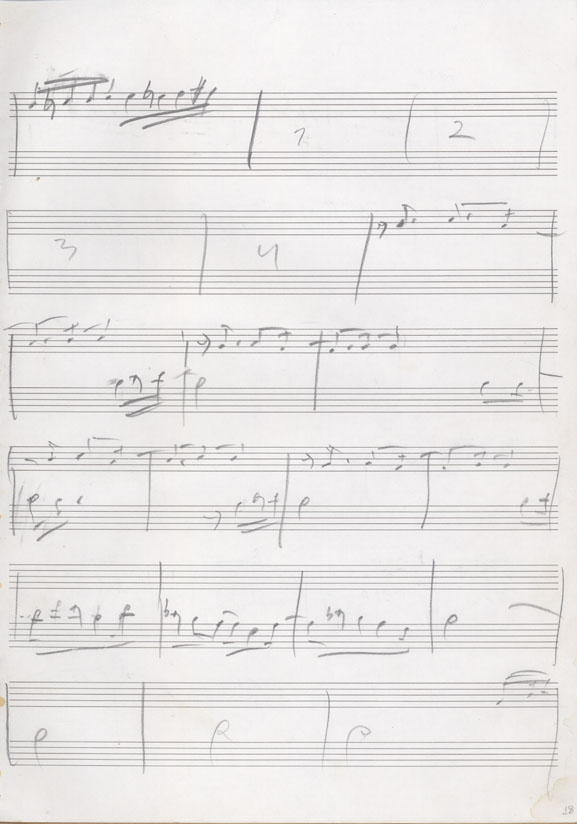 1 2
3 4
18